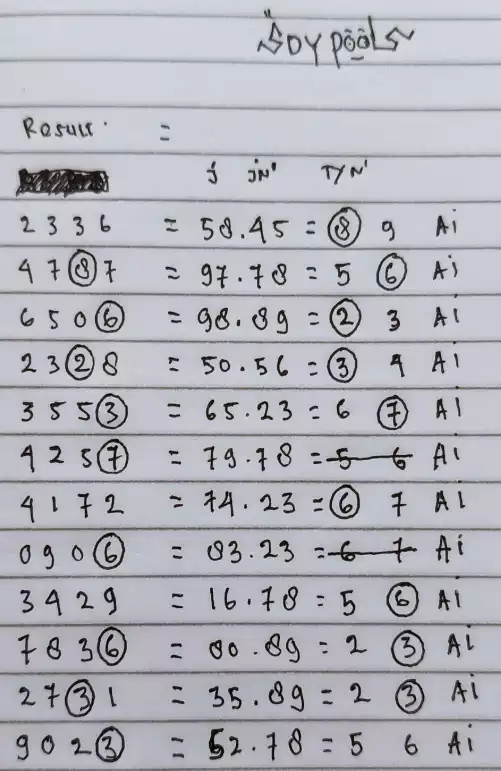 Soypools
Result. =
J JN' TYN'
2336 = 58.45 = 8 9 Ai
4787 = 97.78 = 5 6 Ai
6506 = 98.89 = 2 3 Ai
2328 = 50.56 = 3 4 Ai
3553 = 65.23 = 6 7 Ai
4257 = 79.78 = 5 6 Ai
4172 = 74.23 = 6 7 Ai
0906 = 83.23 = 6 7 Ai
3429 = 16.78 = 5 6 Ai
7836 = 80.89 = 2 3 Ai
2731 = 35.89 = 2 3 Ai
9023 = 52.78 = 5 6 Ai